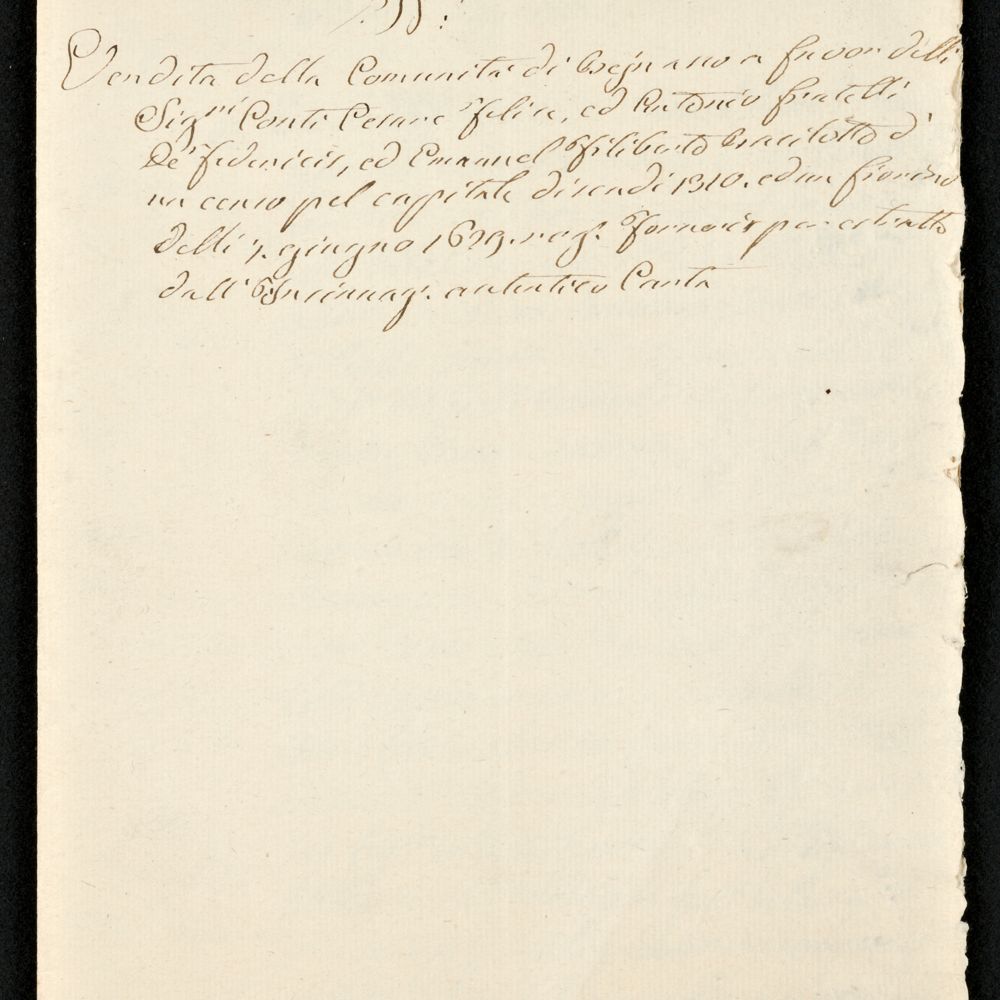 Vendita della Comunità di Begnano a favor delli
Sig.ri Conti Cesare Felice, ed Antonio fratelli
De' Federicis, ed Emanuel Filiberto d'
un censo pel capitale di scudi 1310. ed un fiorino
delli giugno 1629. rog.o per estratto
dall' autentico Canta